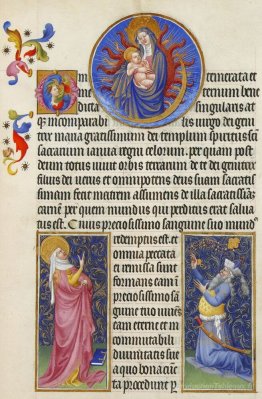 in temerata et
eternum bene
dicta singularis at
qz incomparabilis virgo dei geni
trix maria gratissimum dei templum spiritus sancti
sacrarium ianua regni celorum. per quam post
deum totus vivit orbis terrarum de te dei genitrix
filius dei verus et omnipotens deus suam sacratis
simam fecit matrem assumens de illa sacratissima
carne per quem mundus qui perditus erat salva
tus est. Cuius preciosissimo sanguine suo mund
redemptus est et
omnia peccata
ei remissa sunt
preciosissimo
guine
eterne et in
commutabili
divinitatis sue
a quo bona cunc
ta procedunt